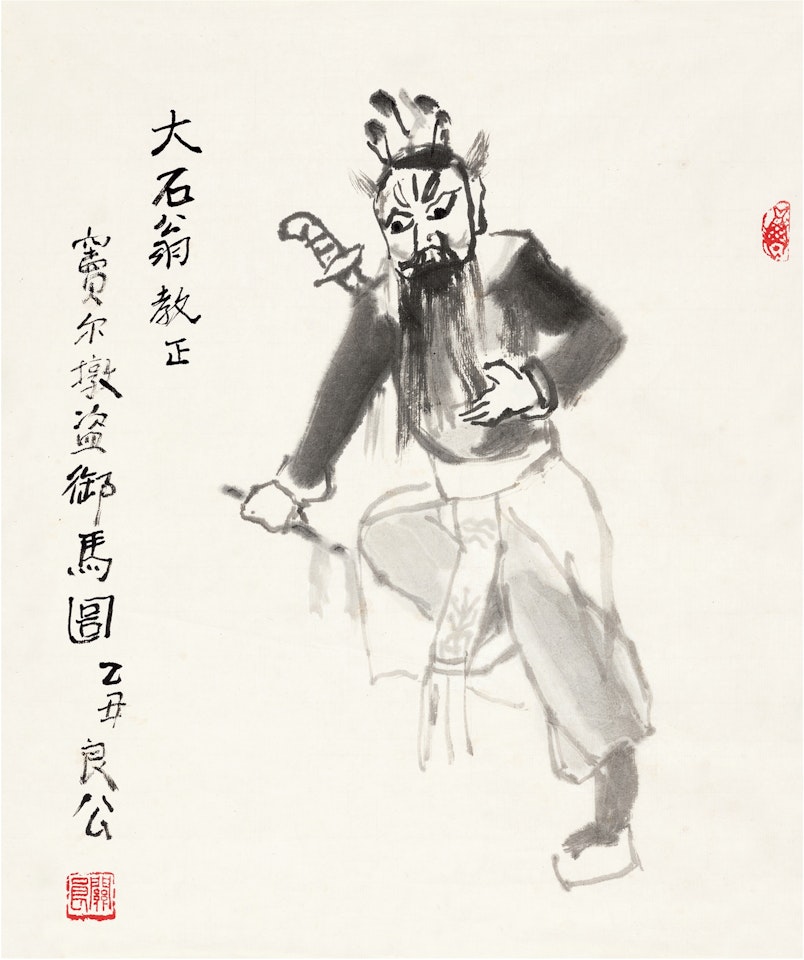 大石翁教正
竇尔墩盗御馬圖 乙丑良公
關良